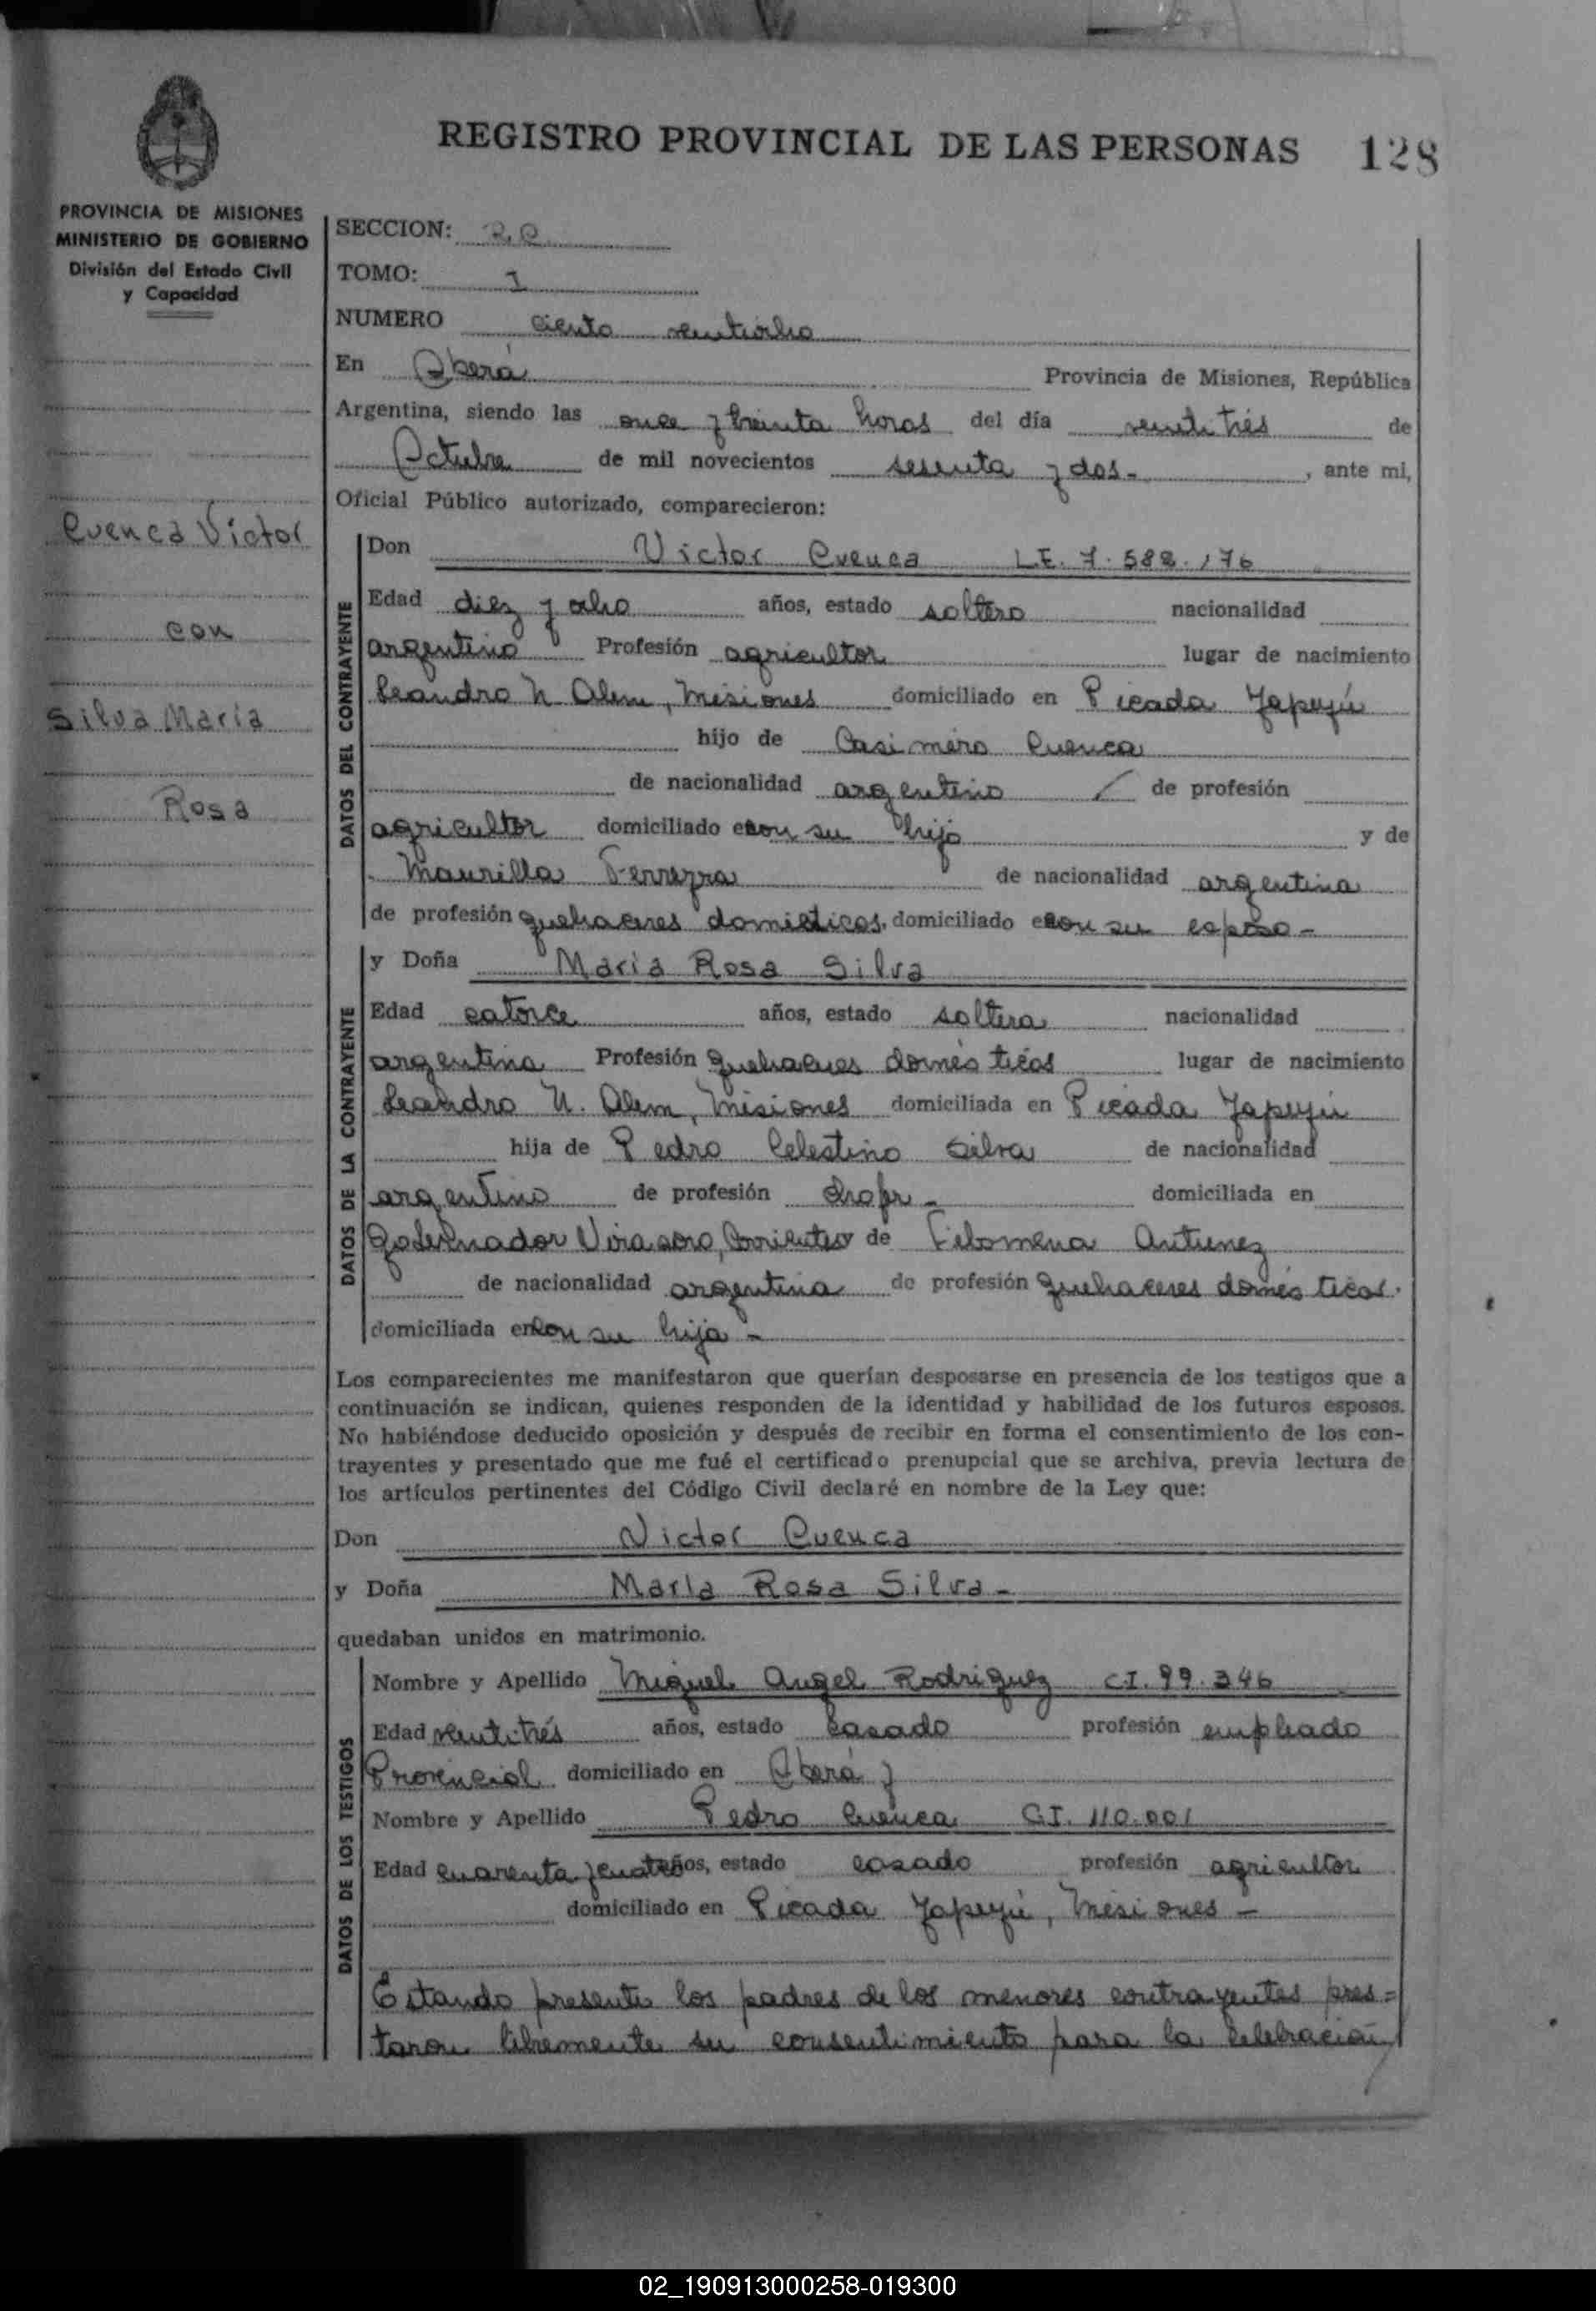 REGISTRO PROVINCIAL DE LAS PERSONAS 128
PROVINCIA DE MISIONES
MINISTERIO DE GOBIERNO
División del Estado Civil
y Capacidad
Cuenca Victor
con
Silva Maria
Rosa
SECCION: 2.a
TOMO: 1
NUMERO ciento ventiocho
En Oberá Provincia de Misiones, República
Argentina, siendo las once y treinta horas del día ventitrés de
Octubre de mil novecientos sesenta y dos- , ante mi,
Oficial Público autorizado, comparecieron:
DATOS DEL CONTRAYENTE
Don Victor Cuenca L.E. 7.588.176
Edad diez y ocho años, estado soltero nacionalidad
argentino Profesión agricultor lugar de nacimiento
Leandro N Alem, Misiones domiciliado en Picada Yapeyú
hijo de Casimero Cuenca
de nacionalidad argentino de profesión
agricultor domiciliado econ su hijo y de
Maurilla Ferreyra de nacionalidad argentina
de profesión quehaceres domésticos, domiciliado econ su esposo-
DATOS DE LA CONTRAYENTE
y Doña Maria Rosa Silva
Edad catorce años, estado soltera nacionalidad
argentina Profesión quehaceres domésticos lugar de nacimiento
Leandro N. Alem, Misiones domiciliada en Picada Yapeyú
hija de Pedro Celestino Silva de nacionalidad
argentino de profesión chofer- domiciliada en
Gobernador Virasoro, Corrientes y de Filomena Antunez
de nacionalidad argentina de profesión quehaceres domésticos.
domiciliada en con su hija-
Los comparecientes me manifestaron que querían desposarse en presencia de los testigos que a
continuación se indican, quienes responden de la identidad y habilidad de los futuros esposos.
No habiéndose deducido oposición y después de recibir en forma el consentimiento de los con-
trayentes y presentado que me fué el certificado prenupcial que se archiva, previa lectura de
los artículos pertinentes del Código Civil declaré en nombre de la Ley que:
Don Victor Cuenca
y Doña Maria Rosa Silva-
quedaban unidos en matrimonio.
DATOS DE LOS TESTIGOS
Nombre y Apellido Miguel Angel Rodriguez C.I. 99.346
Edad ventitrés años, estado casado profesión empleado
Provincial domiciliado en Oberá y
Nombre y Apellido Pedro Cuenca C.I. 110.001
Edad cuarenta y cuatro años, estado casado profesión agricultor
domiciliado en Picada Yapeyú, Misiones-
Estando presente los padres de los menores contrayentes pres=
taron libremente su consentimiento para la celebración
02_190913000258-019300